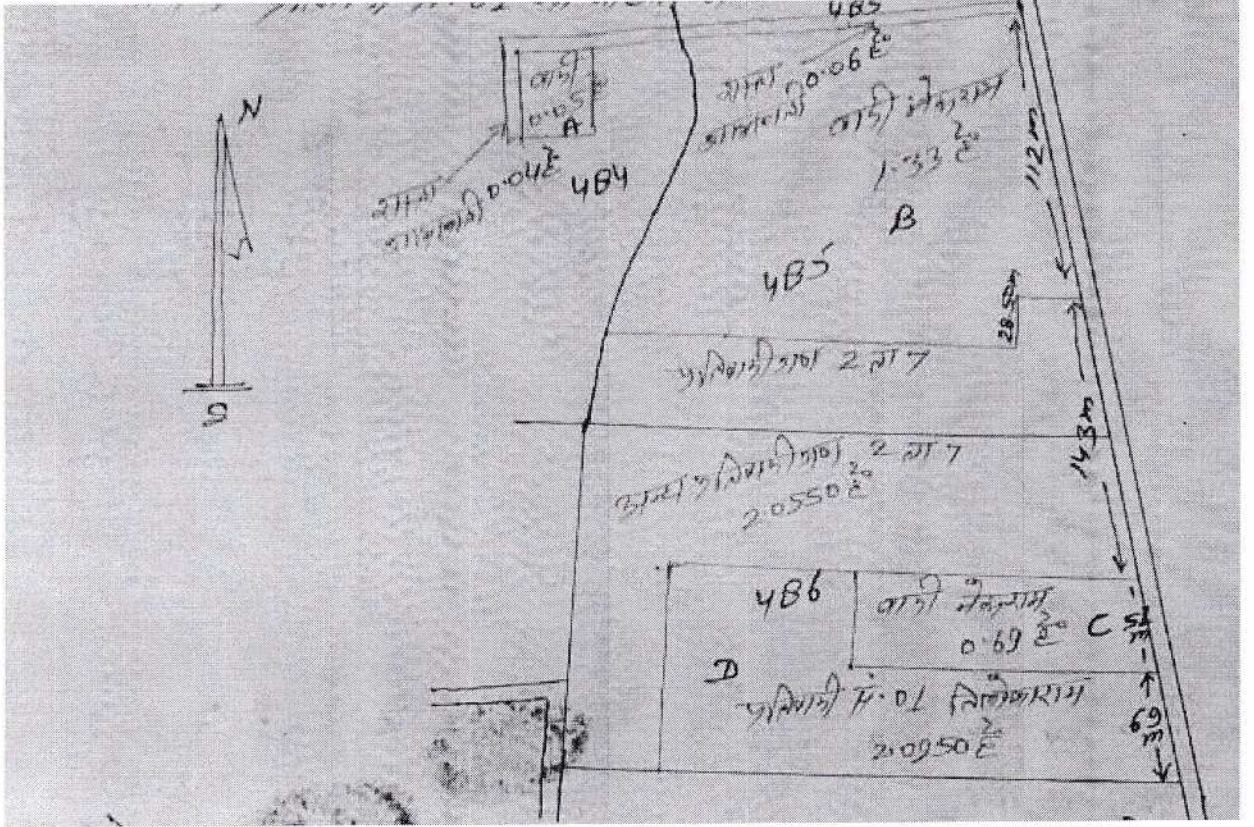 485
वादी
0.05 हे०
A
रास्ता
0.04 हे०
484
रास्ता 0.06 हे०
वादी नेकाराम
1.33 हे०
B
485
N
S
112 m
28.50m
प्रतिवादीगण 2 ता 7
143m
अन्य प्रतिवादीगण 2 ता 7
2.0550 हे०
486
वादी नेकाराम
0.69 हे०
C
51 m
D
प्रतिवादी सं. 01 त्रिलोकाराम
2.0950 हे०
69 m